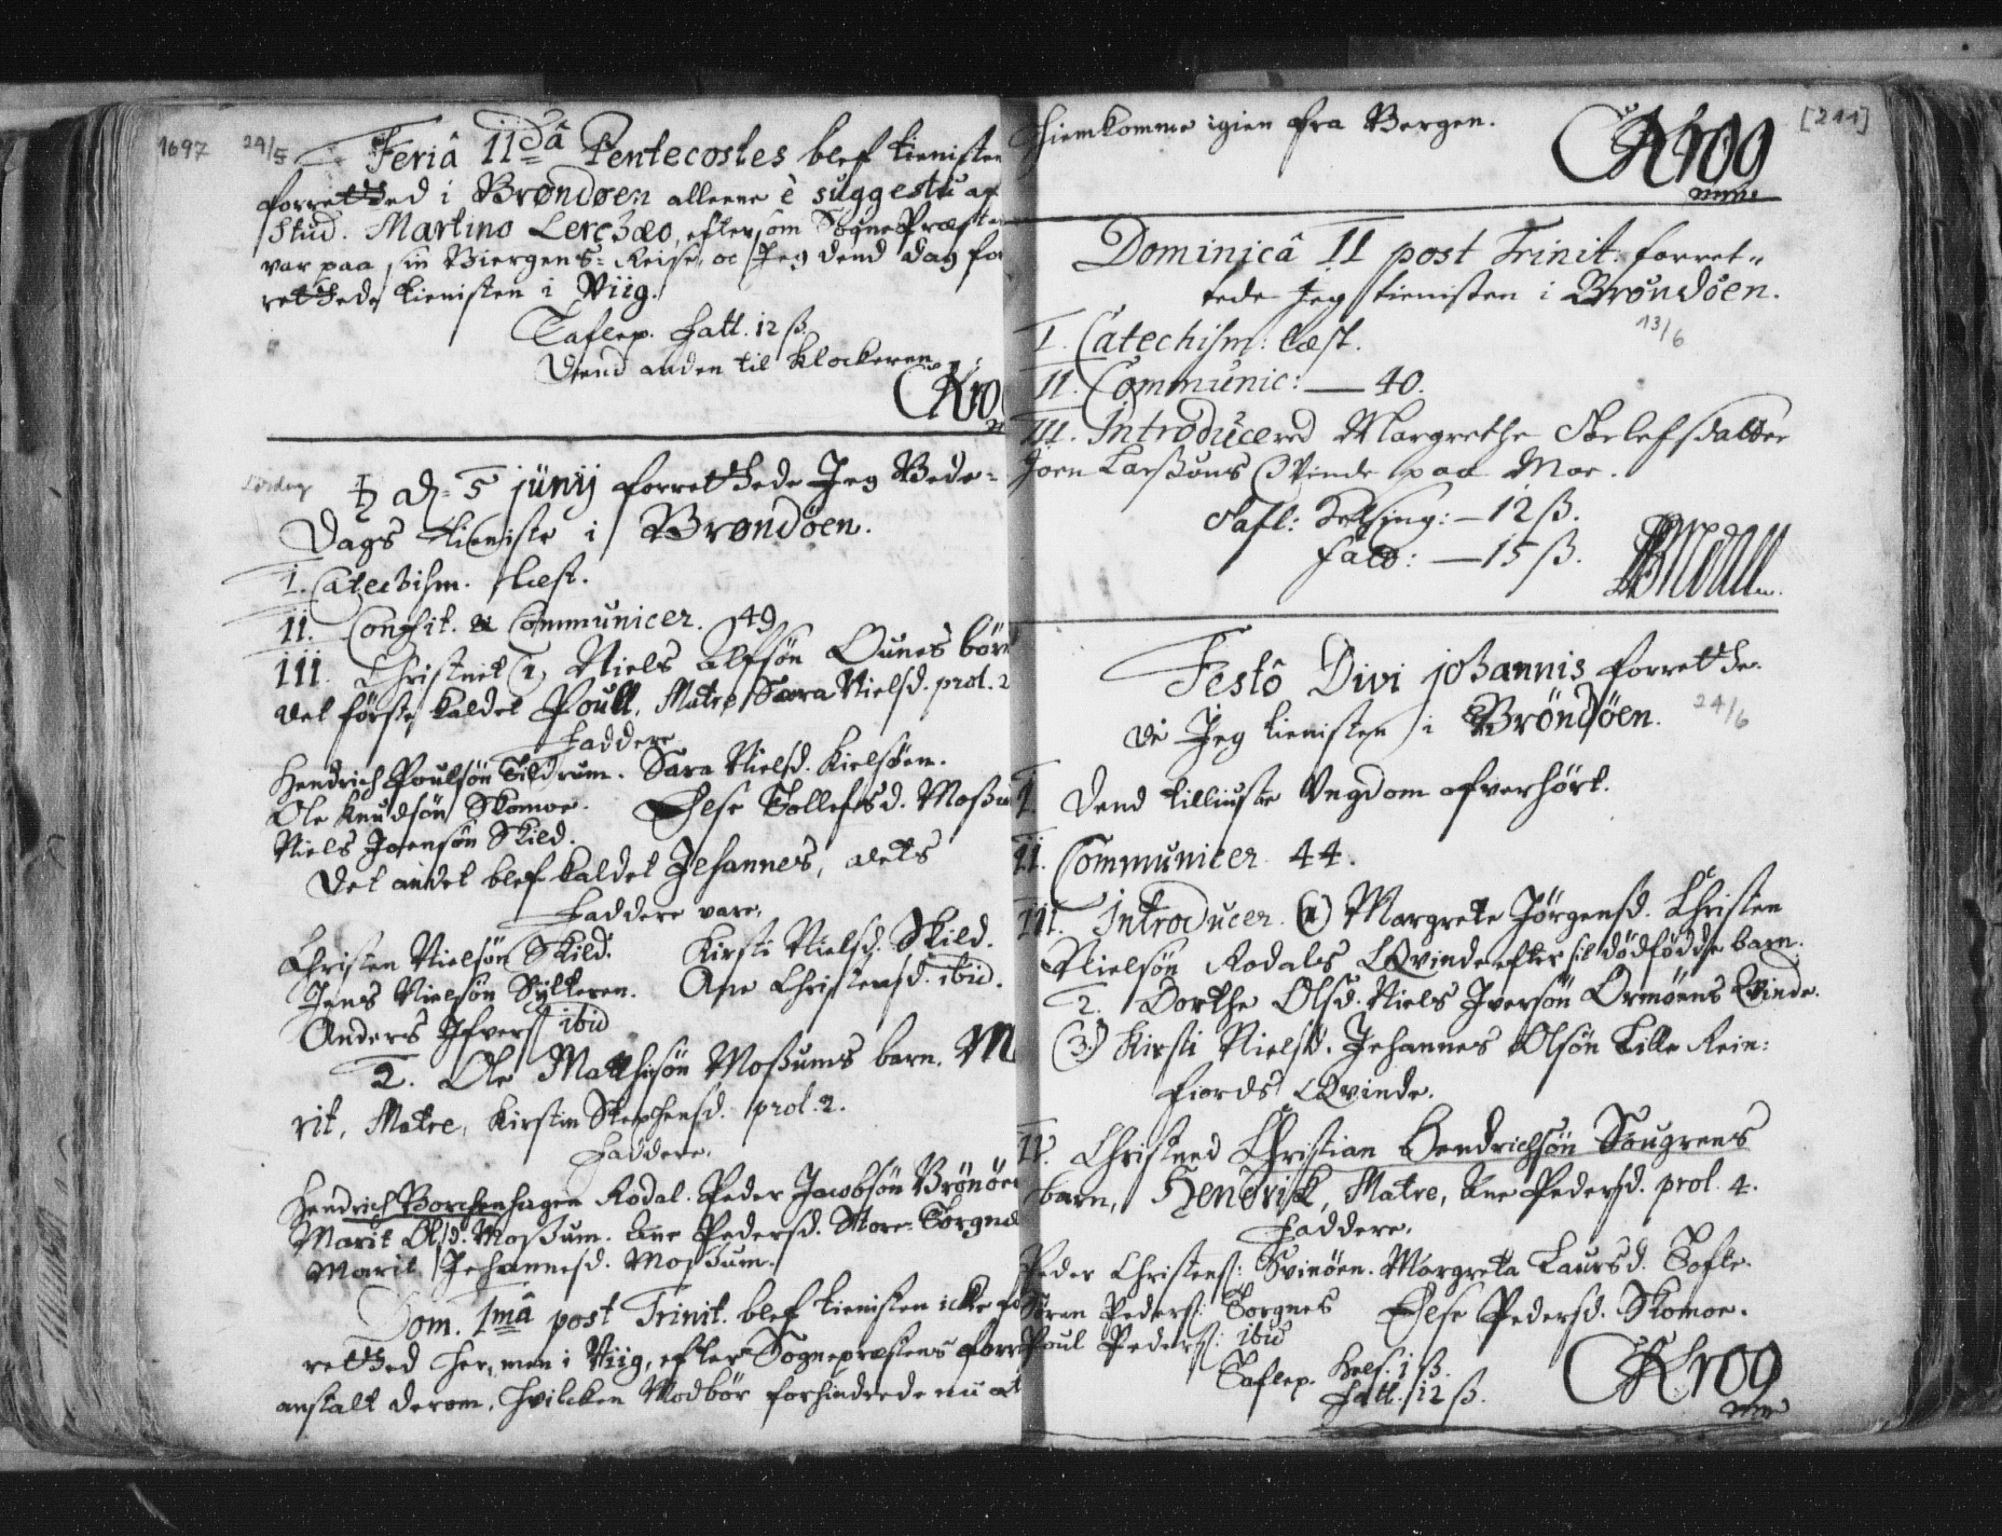 1697 24/5 Feriâ IIdâ Pentecostes blef tienisten
forretthed i Brøndøen alleene è suggestu af
Stud. Martino Lerchæo, eftersom SognePræsten
var paa sin Biergens-Reise, oc Jeg dend dag for
retthede tienisten i Viig.
Taflep. Fatt. 12 ß.
Dend anden til Klockeren
Krog
Lørdag ♄ d. 5 junij forretthede Jeg Bede-
Dags tieniste i Brøndöen.
I. Catechism. læst.
II. Confit. & Communicer. 49
III. Christnet 1, Niels Alfsøn Ounes börn
det förste kaldet Poull, Matre Sara Nielsd. prol. 2
Faddere
Hendrich Poulsön Tildrum. Sara Nielsd. Kielsöen.
Ole Knudsön Skomoe. Else Tollefsd. Moßum
Niels Joensön Skild.
Det andet blef kaldet Jehannes, dets
Faddere vare,
Christen Nielsön Skild. Kirsti Nielsd. Skild.
Jens Nielsön Sylteren. Ane Christensd. ibid.
Anders Ifvers. ibid
2. Ole Matthisön Moßums barn. Ma
rit, Matre, Kirstin Stephensd. prol. 2.
Faddere.
Hendrich Borchenhagen Rodal. Peder Jacobsön Brönöen
Marit Olsd. Moßum. Ane Pedersd. Store-Torgnes
Marit Jehannesd. Moßum.
Dom. 1mâ post Trinit. blef tienisten icke for
retthed her, men i Viig, efter Sognepræstens forre
anstalt derom, hvilcken Modbör forhindrede nu at
hiemkomme igien fra Bergen. [211]
Krog
mm
Dominicâ II post Trinit. forret-
tede Jeg tienisten i Brøndöen.
13/6
I. Catechism: læst.
II. Communic: — 40.
III. Introducered Margrethe Torlefsdatter
Joen Larßöns Qvinde paa Moe.
Tafl: Helsing: — 12 ß.
Fatt: — 15 ß.
Festô Divi johannis forretthe-
de Jeg tienisten i Bröndöen. 24/6
I. Dend tilliuste Ungdom ofverhört.
II. Communicer. 44.
III. Introducer. (1) Margrete Jörgensd. Christen
Nielsön Rodals Qvinde efter sit dödfödde barn.
2. Dorthe Olsd. Niels Iversön Ormöens Qvinde.
(3) Kirsti Nielsd. Jehannes Olsön Lille Rein-
fiords Qvinde.
IV. Christned Christian Hendrichsön Sougrens
barn, Hendrick, Matre, Ane Pedersd. prol. 4.
Faddere.
Peder Christens: Svinöen. Margreta Laursd. Tofte.
Sören Peders: Torgnes Else Pedersd. Skomoe.
Poul Peders: ibid
Taflep. Hels. 1 ß.
Fatt. 12 ß.
Krog
mm